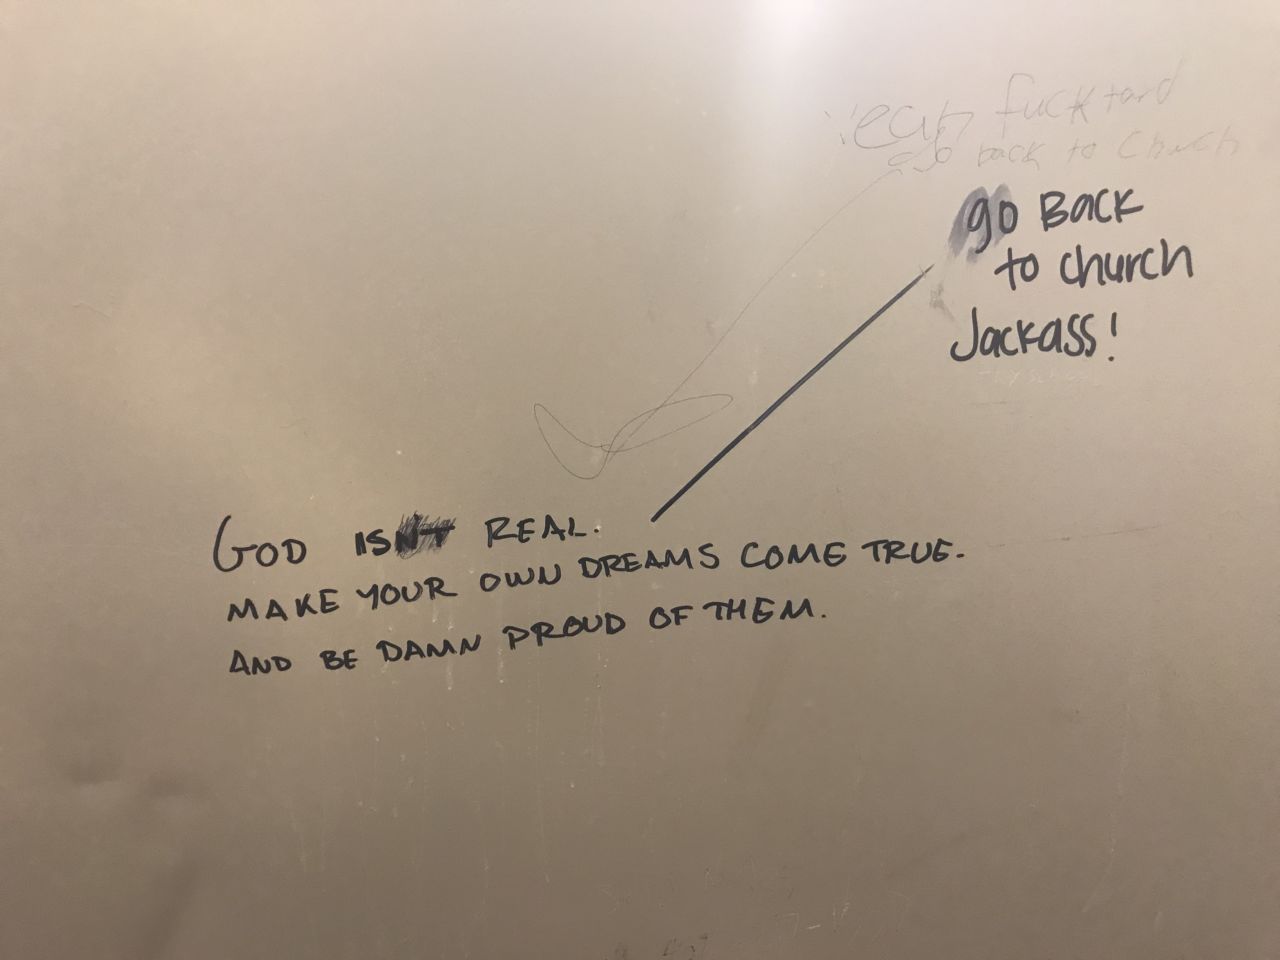 Yeah fucktard
go back to church
go Back
to church
Jackass!
GOD ISN'T REAL.
MAKE YOUR OWN DREAMS COME TRUE.
AND BE DAMN PROUD OF THEM.